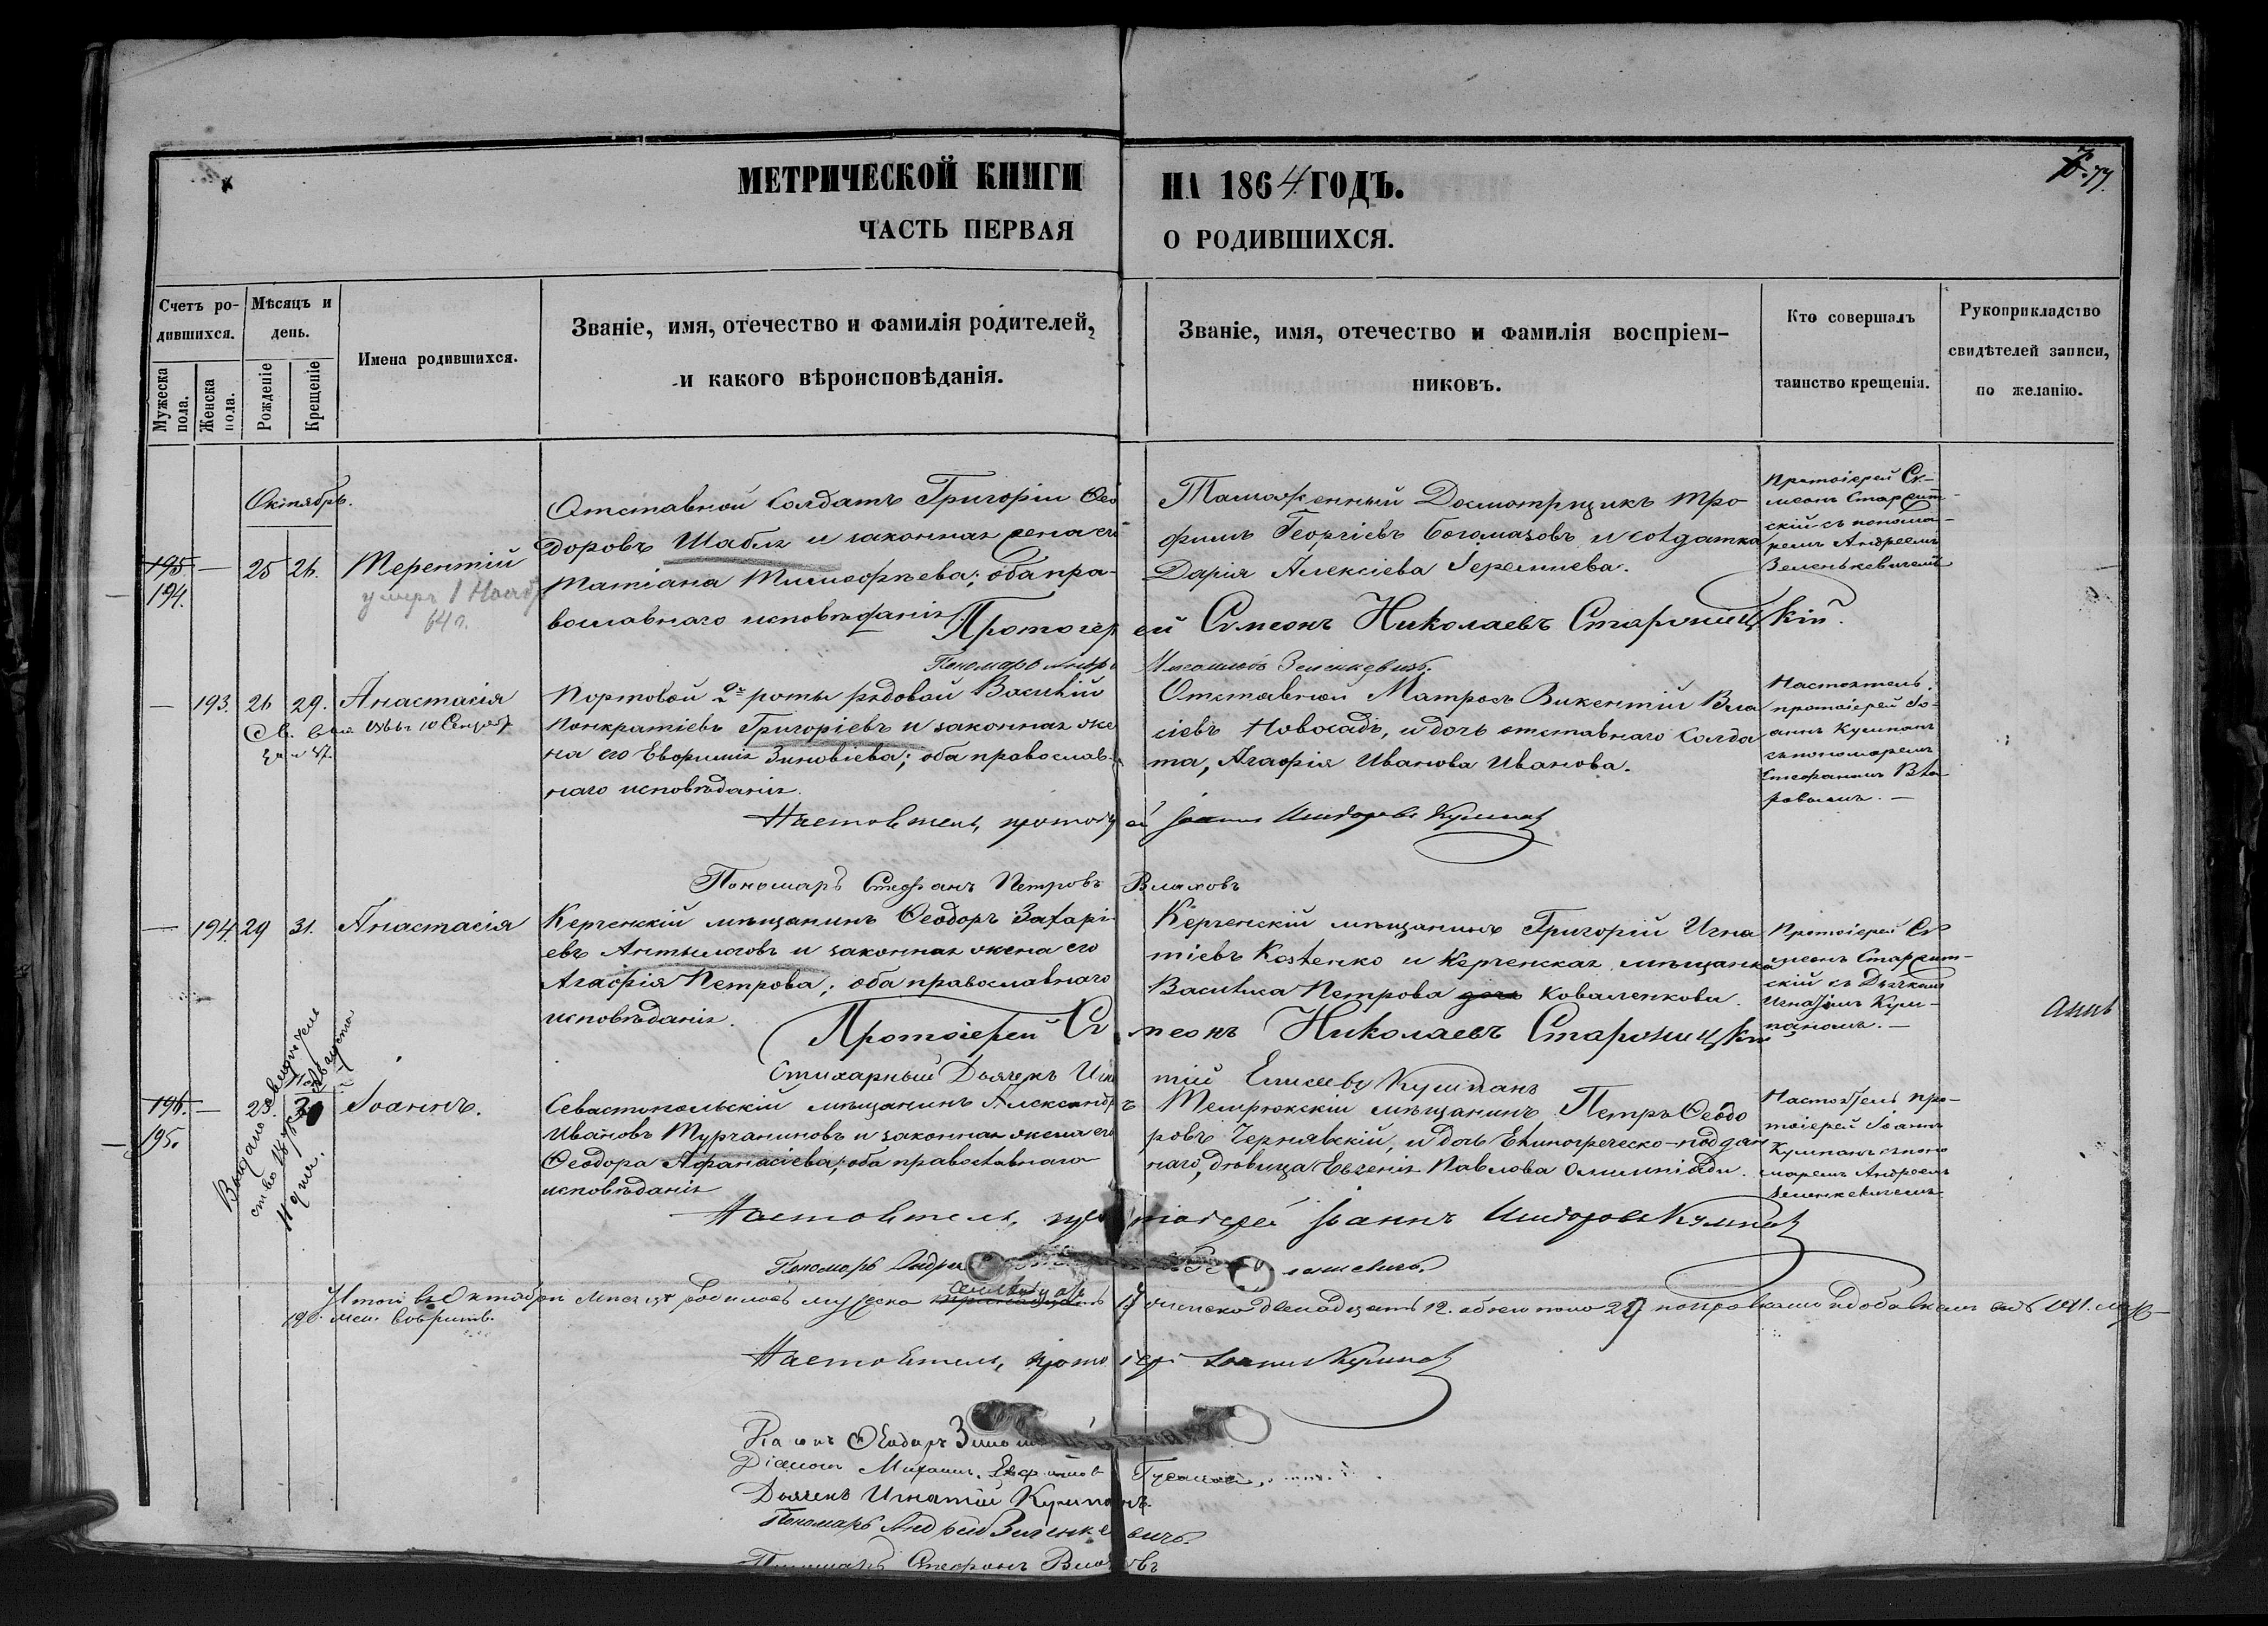 МЕТРИЧЕСКОЙ КНИГИ НА 1864 ГОДЪ.
ЧАСТЬ ПЕРВАЯ О РОДИВШИХСЯ.
77
Счетъ ро-
дившихся.
Мужеска
пола.
Женска
пола.
Мѣсяцъ и
день.
Рожденіе
Крещеніе
Имена родившихся.
Званіе, имя, отечество и фамилія родителей,
и какого вѣроисповѣданія.
Званіе, имя, отечество и фамилія воспріем-
никовъ.
Кто совершалъ
таинство крещенія.
Рукоприкладство
свидѣтелей записи,
по желанію.
Октябрь.
195
194.
—
25
26.
Терентій
умеръ 1 Нояб
64 г.
Отставной Солдатъ Григорій Ѳео
доровъ Шабля и законная жена его
Татіана Тимоѳѣева; оба пра-
вославнаго исповѣданія.
Таможенный Досмотрщикъ Тро
фимъ Георгіевъ Богомазовъ и солдатка
Дарія Алексіева Іереміева.
Протоіерей Сѵ-
меонъ Старожит-
скій съ понома-
ремъ Андреемъ
Зеленькевичемъ
Протоіерей Сѵмеонъ Николаевъ Старожицкій.
Пономарь Андрей Зеленкевичъ.
—
193.
26
29.
Анастасія
Портовой 2й роты рядовой Василій
Понкратіевъ Григоріевъ и законная же
на его Евфимія Зиновіева; оба православ-
наго исповѣданія.
Отставной Матросъ Викентій Вла
сіевъ Новосадъ, и дочь отставнаго Солда
та, Агафія Иванова Иванова.
Настоятель
протоіерей Іо-
аннъ Кумпанъ
съ пономаремъ
Стефаномъ Вла
ховымъ. —
Настоятель, протоіерей Іоаннъ Кумпанъ
Пономарь Стефанъ Петровъ Влаховъ
—
194.
29
31.
Анастасія
Керченскій мѣщанинъ Ѳеодоръ Захарі-
евъ Антыповъ и законная жена его
Агафія Петрова; оба православнаго
исповѣданія.
Керченскій мѣщанинъ Григорій Игна
тіевъ Костенко и Керченская мѣщанка
Василиса Петрова Коваленкова.
Протоіерей Сѵ
меонъ Старожит-
скій съ Дьячкомъ
Игнатіемъ Кум-
паномъ. —
Протоіерей Сѵмеонъ Николаевъ Старожицкій
Стихарный Дьячекъ Игнатій Елисеевъ Кумпанъ
196.
195.
—
23.
30
Іоаннъ.
Выдано свидѣтель
ство
Августа
11 дня.
Севастопольскій мѣщанинъ Александръ
Ивановъ Турчаниновъ и законная жена его
Ѳеодора Афанасіева; оба православнаго
исповѣданія
Темрюкскій мѣщанинъ Петръ Ѳеодо
ровъ Чернявскій, и дочь Еллиногреческо-поддан
наго, дѣвица Евгенія Павлова Олимпіади.
Настоятель про-
тоіерей Іоаннъ
Кумпанъ съ поно
маремъ Андреемъ
Зеленкевичемъ
Настоятель, протоіерей Іоаннъ Кумпанъ
Пономарь Андрей
Итого въ Октябрѣ мѣсяцѣ родилось мужеска женска двенадцать 12. обоего пола 29
Настоятель, протоіерей Іоаннъ Кумпанъ
Діаконъ Михаилъ
Дьячекъ Игнатій Кумпанъ.
Пономарь Андрей Зеленкевичъ.
Пономарь Стефанъ Влаховъ